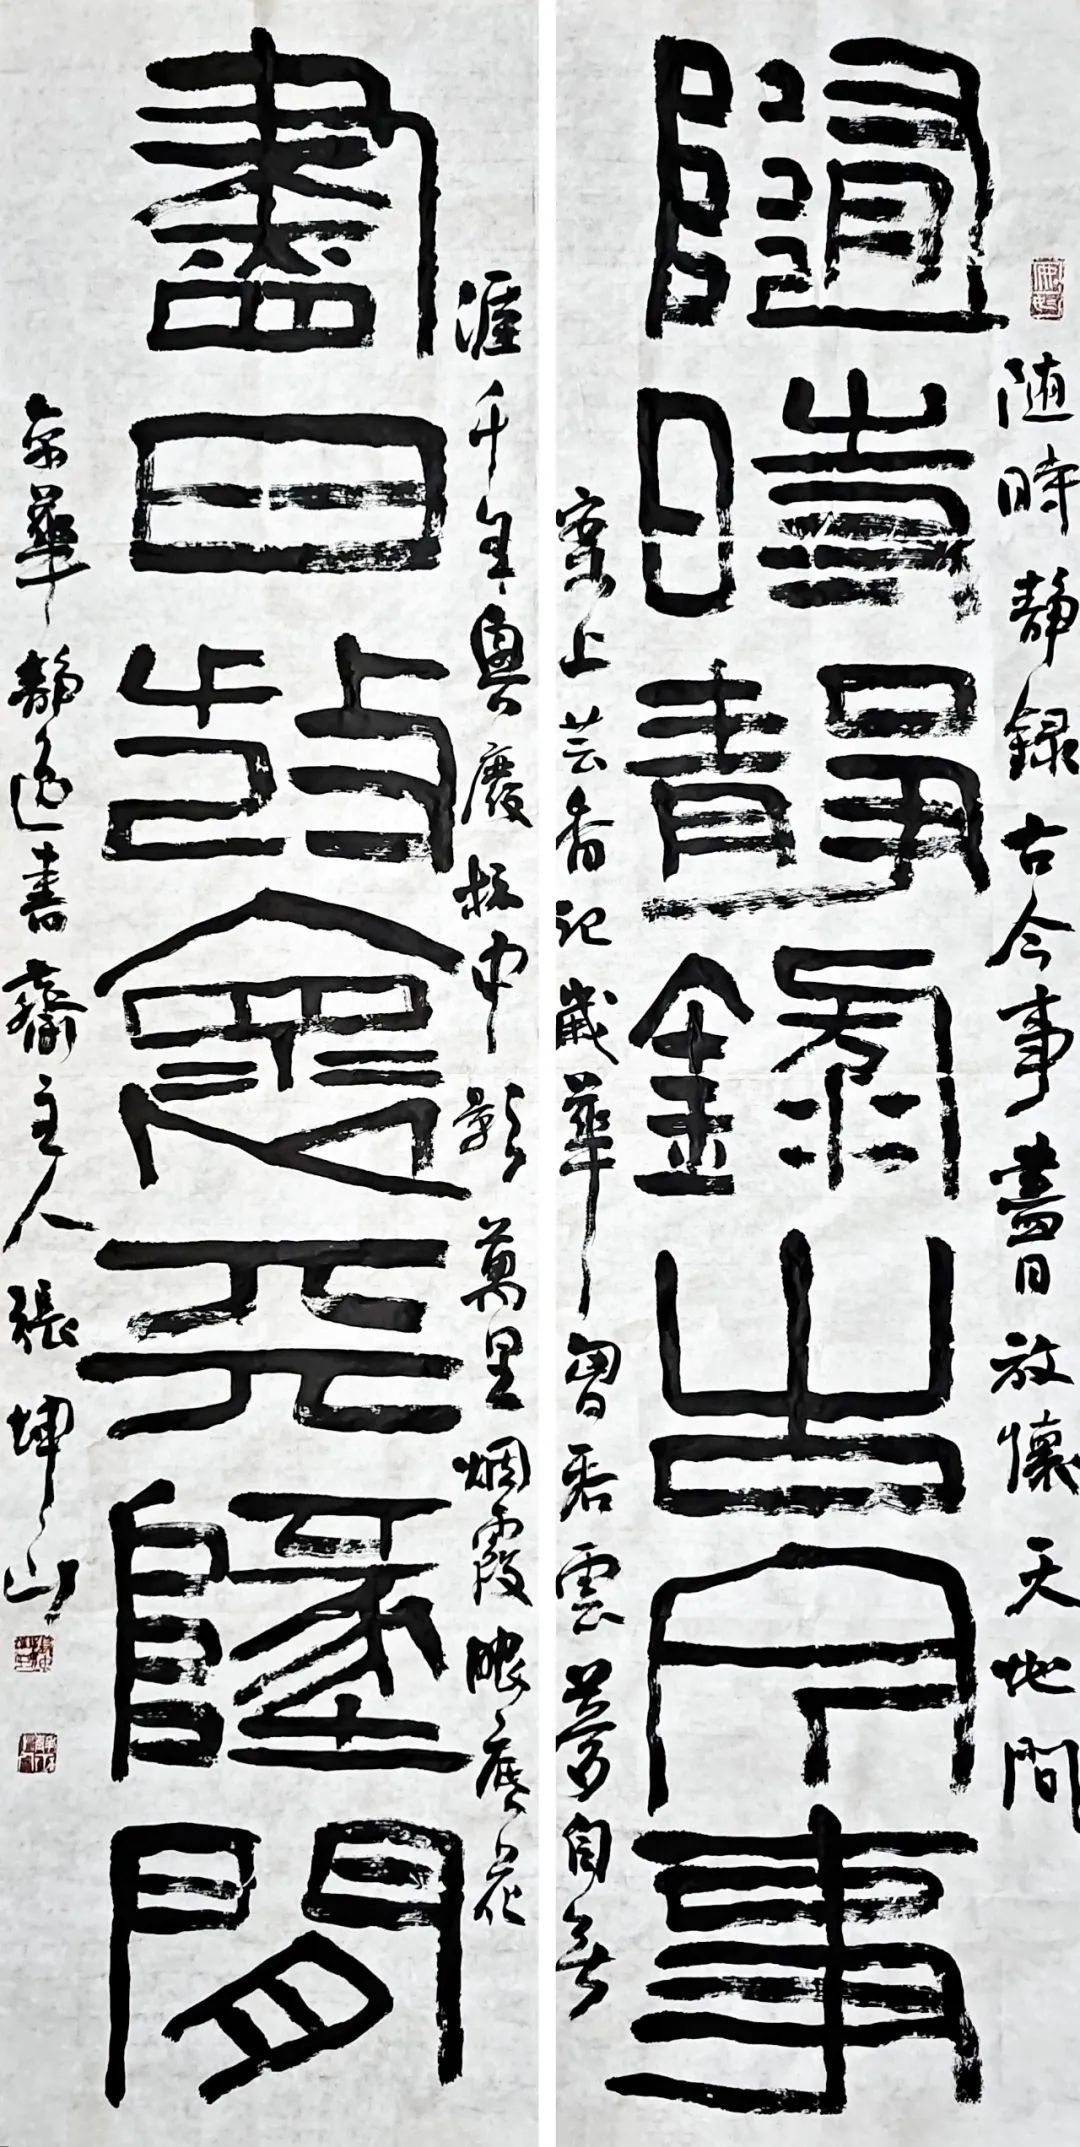 隨時靜錄古今事
随時静録古今事晝日放懷天地間
案上芸香記歲華胸吞雲夢自無
涯千年興廢杯中影萬里烟霞眼底花
晝日放褱天隧間
京華静逸書齋主人張坤山